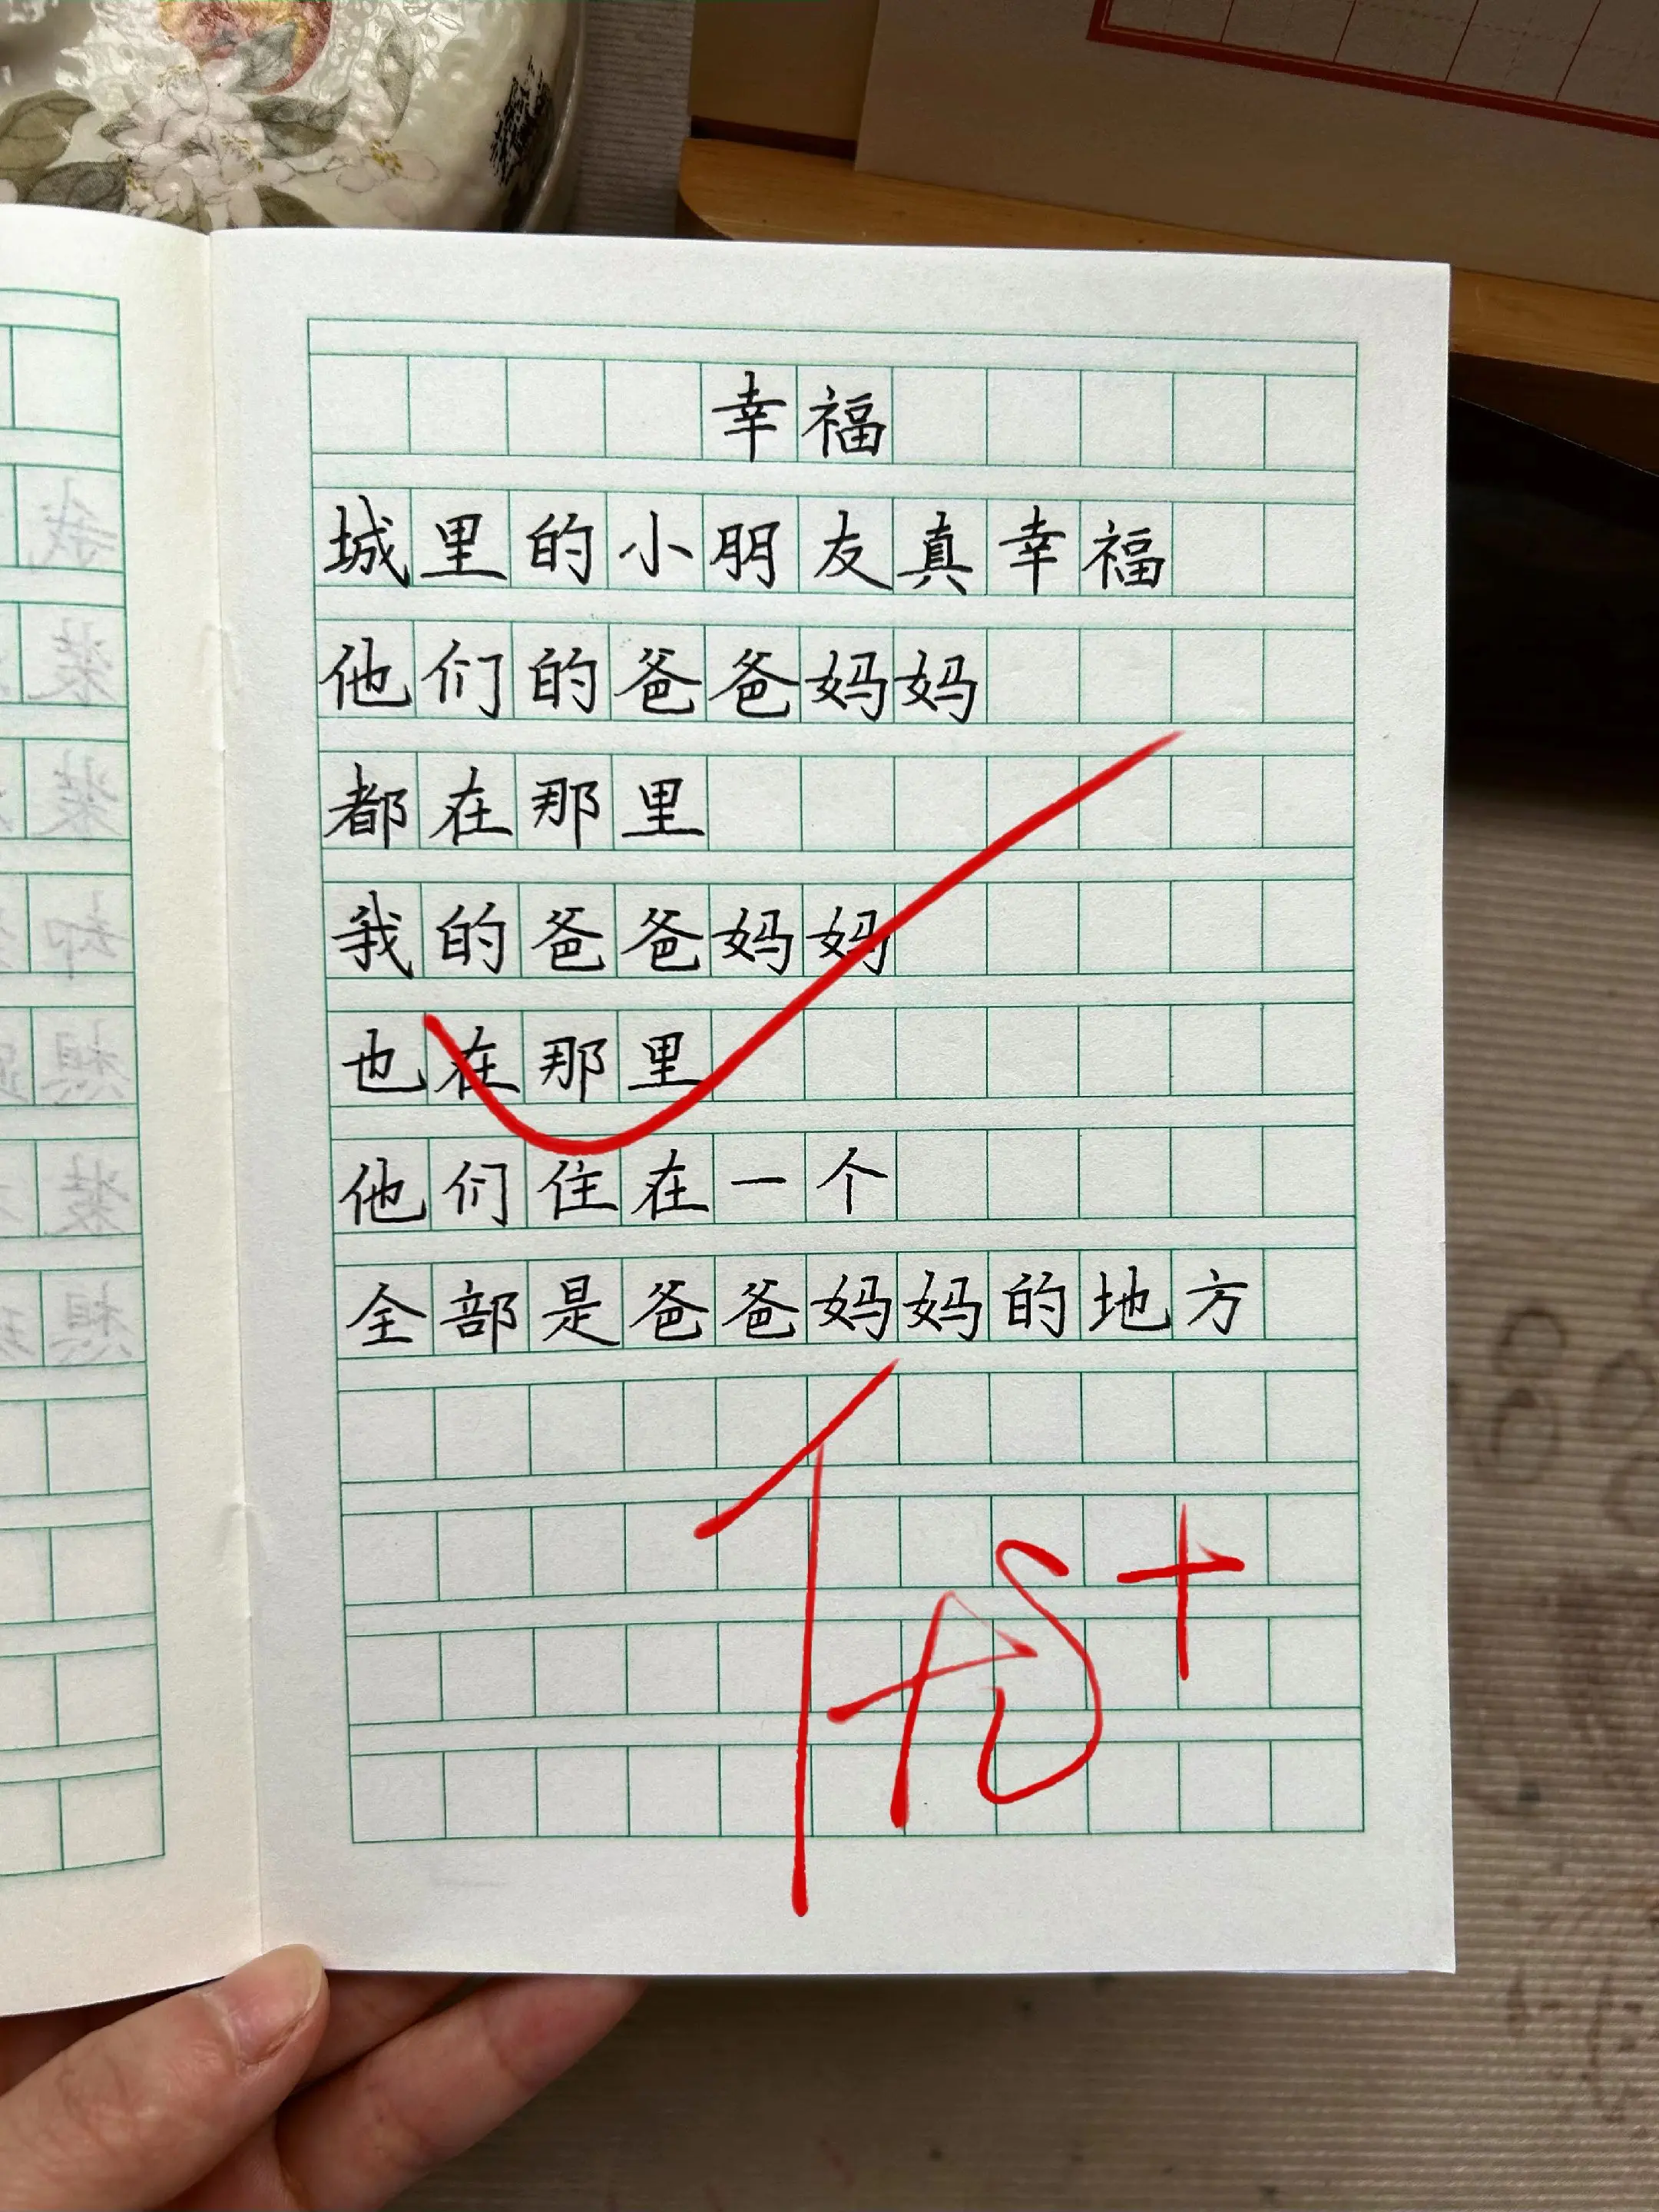 幸福
城里的小朋友真幸福
他们的爸爸妈妈
都在那里
我的爸爸妈妈
也在那里
他们住在一个
全部是爸爸妈妈的地方